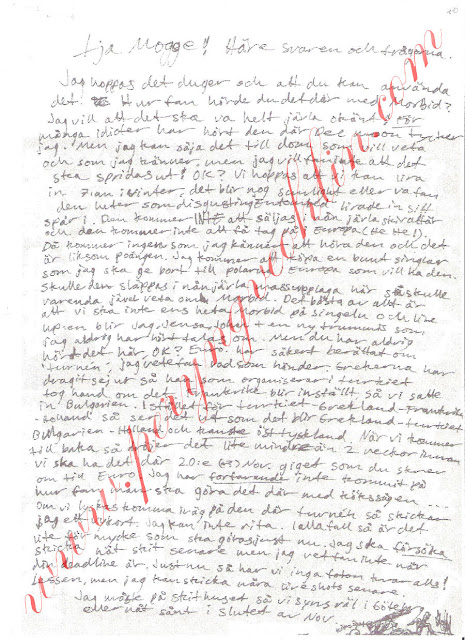 Tja Mogge! Häre svaren och frågorna.
Jag hoppas det duger och att du kan använda
det! Hur fan hörde du det där med Morbid?
Jag vill att det ska va helt järla okänt! För
många idioter har hört den där Dec Moon tycker
jag. Men jag kan säja det till dom som vill veta
och som jag känner, men jag vill fan inte att det
ska spridas ut! OK? Vi hoppas att vi kan lira
in i vinter, det blir nog Sunlight eller va fan
den heter som disgusting Entombed lirade in sitt
spår i. Den kommer INTE att säljas i nån järla skivaffär
och den kommer inte att få tag på i Europa (He He!).
Då kommer ingen som jag känner att höra den och det
är liksom poängen. Jag kommer att köpa en bunt singlar
som jag ska ge bort till polare i Europa som vill ha den.
Skulle den släppas i nån järla massupplaga här så skulle
varenda jävel veta om Morbid. Det bästa av allt är
att vi ska inte ens heta Morbid på singeln och line
up:en blir Jag, Jens, + en ny trummis som
jag aldrig har hört talas om. Men du har aldrig
hört det här, OK? har säkert berättat om
turnén, jag vet e fan vad som händer. Grekerna har
dragit sej ur så han som organiserar i Turkiet
tog hand om det. Frankrike blir inställt så vi satte
in Bulgarien. I stället för Turkiet-Grekland-Frankrike
-Holland så ser det ut som det blir Grekland-Turkiet
Bulgarien-Holland och kanske östtyskland. När vi kommer
till baka så dröjer det lite mindre än 2 veckor innan
vi ska ha det där 20:e Nov. giget som du skrev
om till Euro. Jag har fortfarande inte kommit på
hur fan man ska göra det där med kökssågen...
Om vi lyckas komma iväg på den där turnén så skickar
jag ett vykort. Jag kan inte rita. I alla fall så är det
lite för mycke som ska göras just nu. Jag ska försöka
skicka nåt skit senare men jag vet fan inte när
din deadline är. Just nu så har vi inga foton kvar alls!
Lessen, men jag kan skicka nåra liveshots senare.
Jag måste på skithuset så vi syns väl i Göteborg
eller nåt sånt i slutet av Nov.